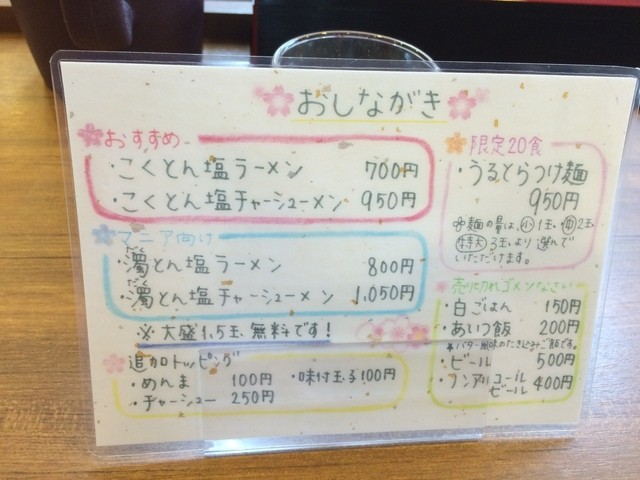 おしながき
おすすめ
・こくとん塩ラーメン 700円
・こくとん塩チャーシューメン 950円
マニア向け
だく
・濁とん塩ラーメン 800円
だく
・濁とん塩チャーシューメン 1,050円
※大盛1.5玉、無料です!
追加トッピング
・めんま 100円 ・味付玉子100円
・チャーシュー 250円
限定20食
・うるとらつけ麺
950円
麺の量は、小1玉、中2玉
特大3玉、より選んで
いただけます。
売り切れゴメンなさい
・白ごはん 150円
・あいつ飯 200円
バター風味のたき込みご飯です。
・ビール 500円
・ノンアルコール
ビール 400円